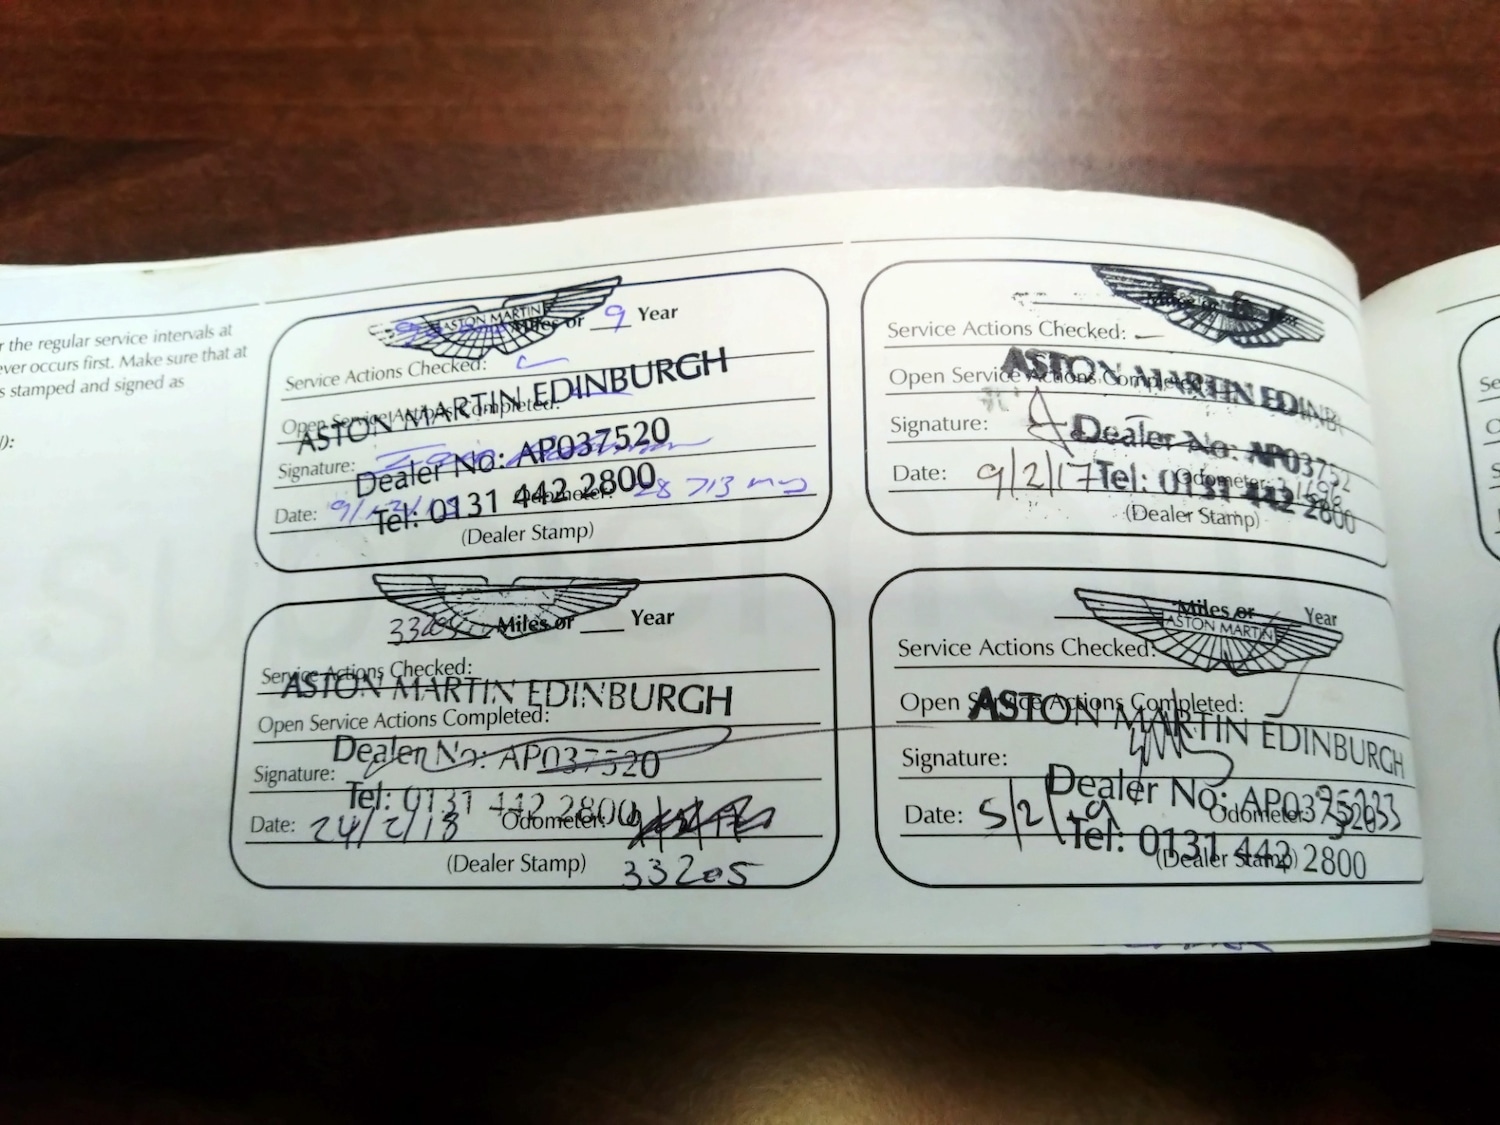 r the regular service intervals at
ever occurs first. Make sure that at
s stamped and signed as
):
ASTON MARTIN
Miles or 9 Year
Service Actions Checked:
Open Service Actions Completed:
ASTON MARTIN EDINBURGH
Signature:
Dealer No: AP037520
Date:
Tel: 0131 442 2800
Odometer: 28 713
(Dealer Stamp)
Service Actions Checked: —
Open Service Actions Completed:
ASTON MARTIN EDINB
Signature:
Dealer No: AP03752
Date: 9/2/17
Tel: 0131 442 2800
Odometer:
(Dealer Stamp)
Miles or ___ Year
Service Actions Checked:
ASTON MARTIN EDINBURGH
Open Service Actions Completed:
Dealer No: AP037520
Signature:
Tel: 0131 442 2800
Date: 24/2/18
Odometer:
(Dealer Stamp)
33205
Miles or
Year
ASTON MARTIN
Service Actions Checked:
Open Service Actions Completed:
ASTON MARTIN EDINBURGH
Signature:
Dealer No: AP037520
Date: 5/2/19
Odometer:
Tel: 0131 442 2800
(Dealer Stamp)
Se